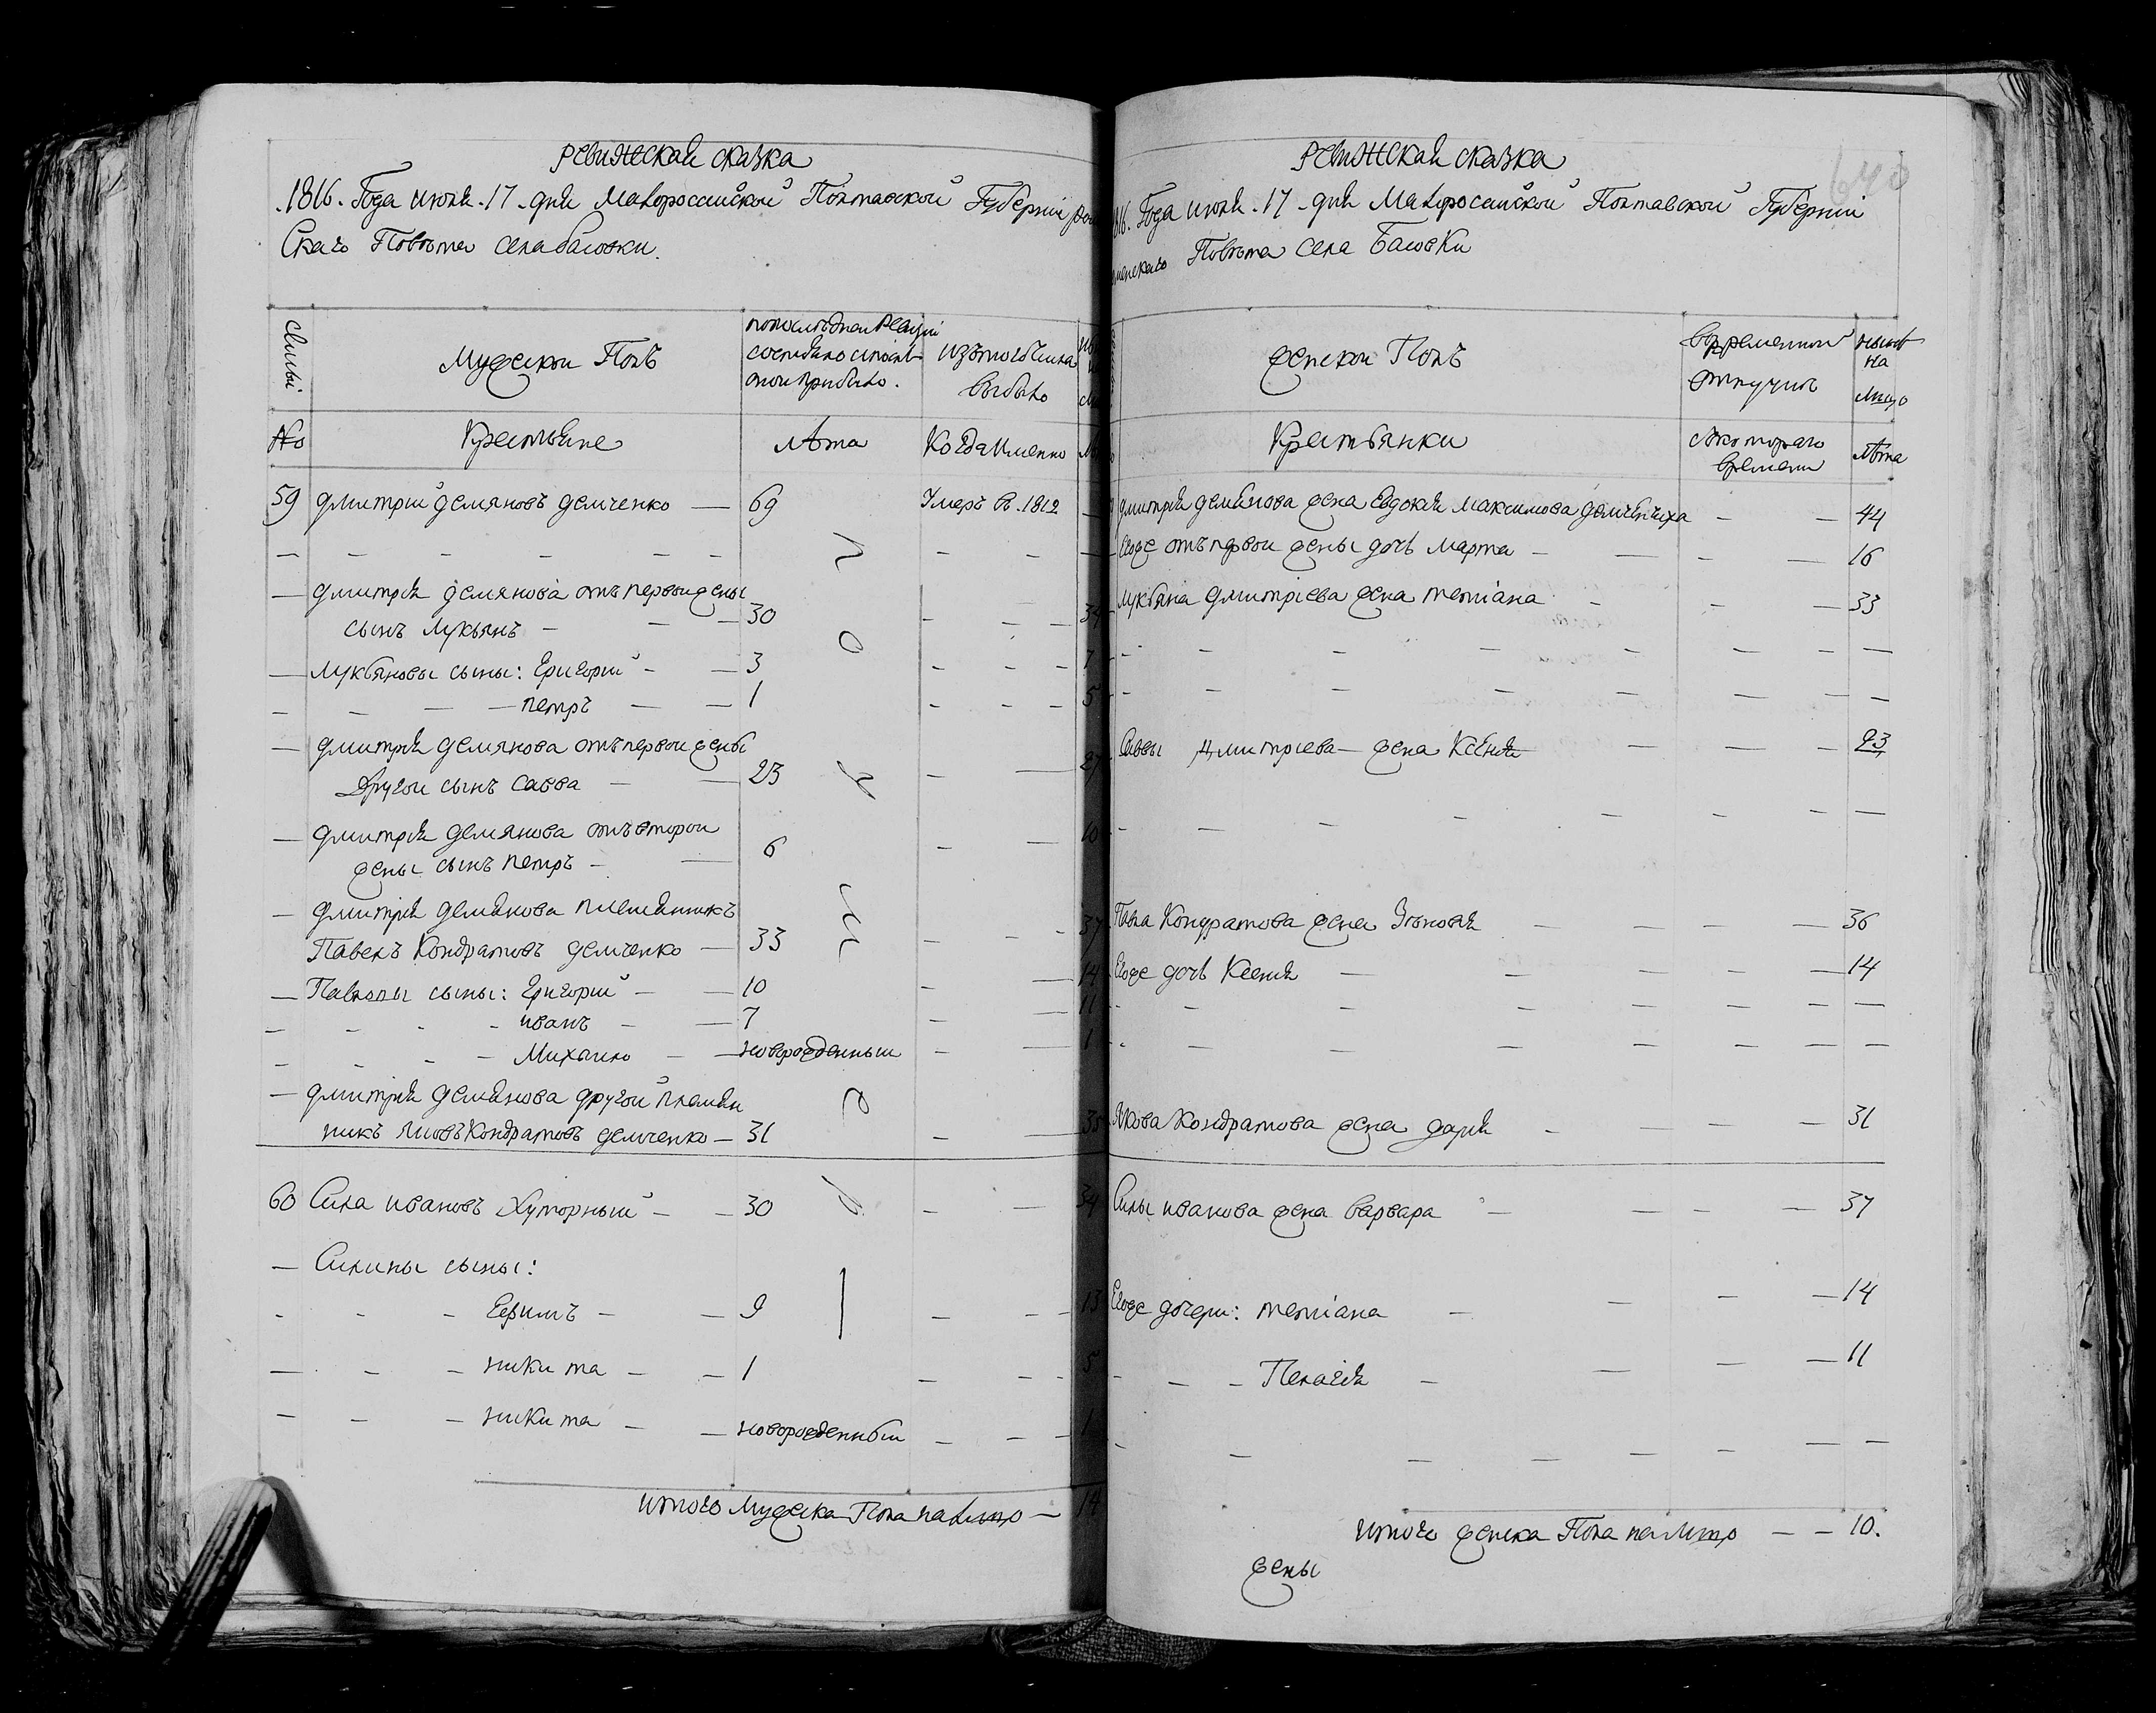 Ревижская сказка
1816. Года июля 17 дня Малороссийской Полтавской Губерніи
Скаго Повѣта села басовки.
Семьи
Мужескои Полъ
попослѣдней Ревизіи
состояло и послѣ
тои прибыло.
Изътогочисла
выбыло
№
Крестьяне
Лѣта
Когда Именно
59 дмитрий демяновъ демченко — 69 Умеръ в. 1812
дмитрія демянова отъ первой жены
сынъ лукьянъ — 30 34
лукьяновы сыны: Григорий — 3 7
петръ — 1 5
дмитрія демянова отъ первой жены
другои сынъ савва — 23 27
дмитрія демянова отъ второи
жены сынъ петръ — 6 10
дмитрія демянова племянникъ
Павелъ Кондратовъ демченко — 33 37
Павловы сыны: Григорий — 10 14
иванъ — 7 11
Михайло — новорожденныи 1
дмитрія демянова другой племян
никъ Яковъ Кондратовъ демченко — 31 35
60 Сила ивановъ Хуторный — 30 34
Силины сыны:
Ефимъ — 9 13
никита — 1 5
никита — новорожденный 1
итого мужеска Пола налицо — 14
640
Ревижская сказка
1816. Года июля 17 дня Малоросийской Полтавской Губерніи
менскаго Повѣта села Басовки
женскои Полъ
Вовременной
отлучке
нынѣ
на
лицо
Крестьянки
Скотораго
времени
Лѣта
дмитрія демянова жена Евдокія Максимова демченчиха — 44
Егоже отъ первои жены дочь марта — 16
лукьяна дмитріева жена татіана — 33
Саввы дмитріева жена Ксенія — 23
Павла Кондратова жена Зѣновія — 36
Егоже дочь Ксенія — 14
Якова Кондратова жена дарія — 31
Силы иванова жена варвара — 37
Егоже дочери: татіана — 14
Пелагія — 11
Итого женска Пола налицо — — 10.
жены